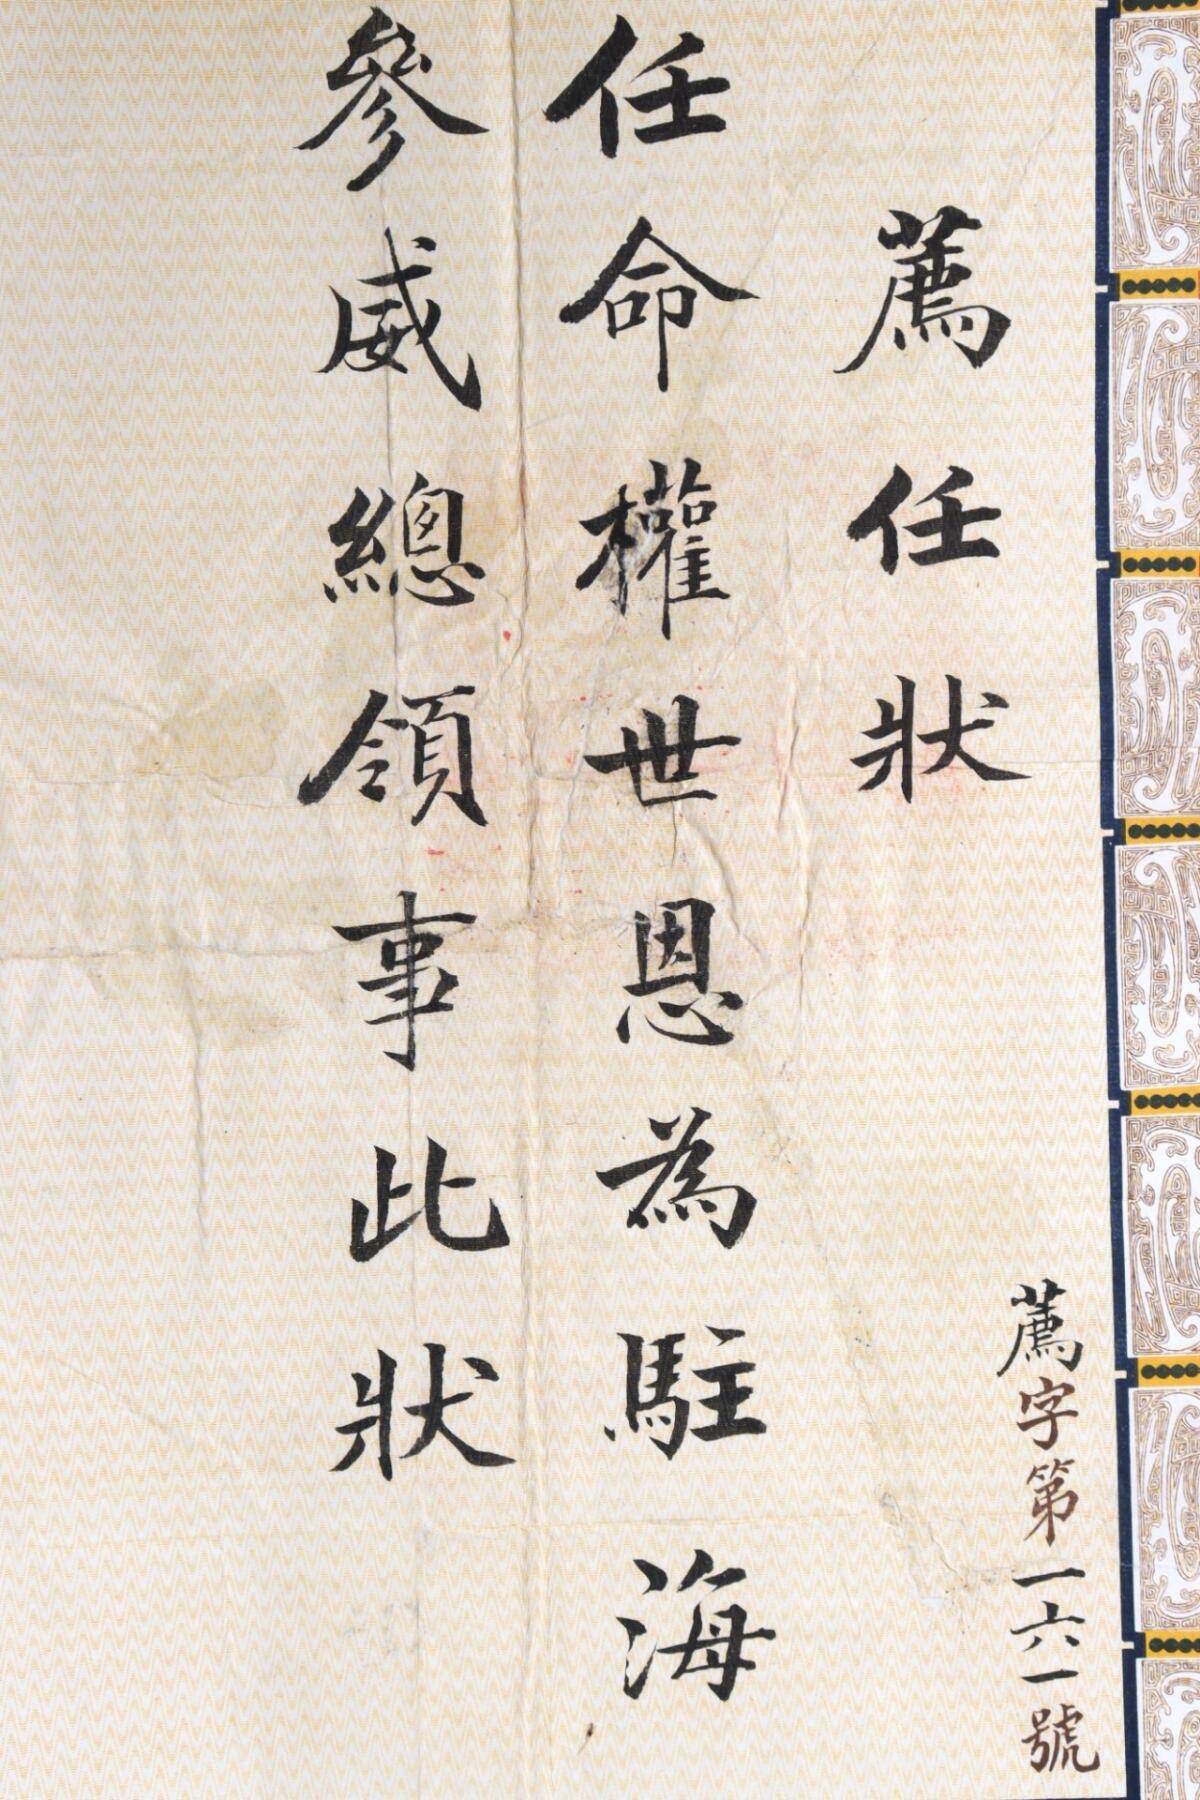 薦字第一六一號
薦任狀
任命權世恩為駐海
參威總領事此狀